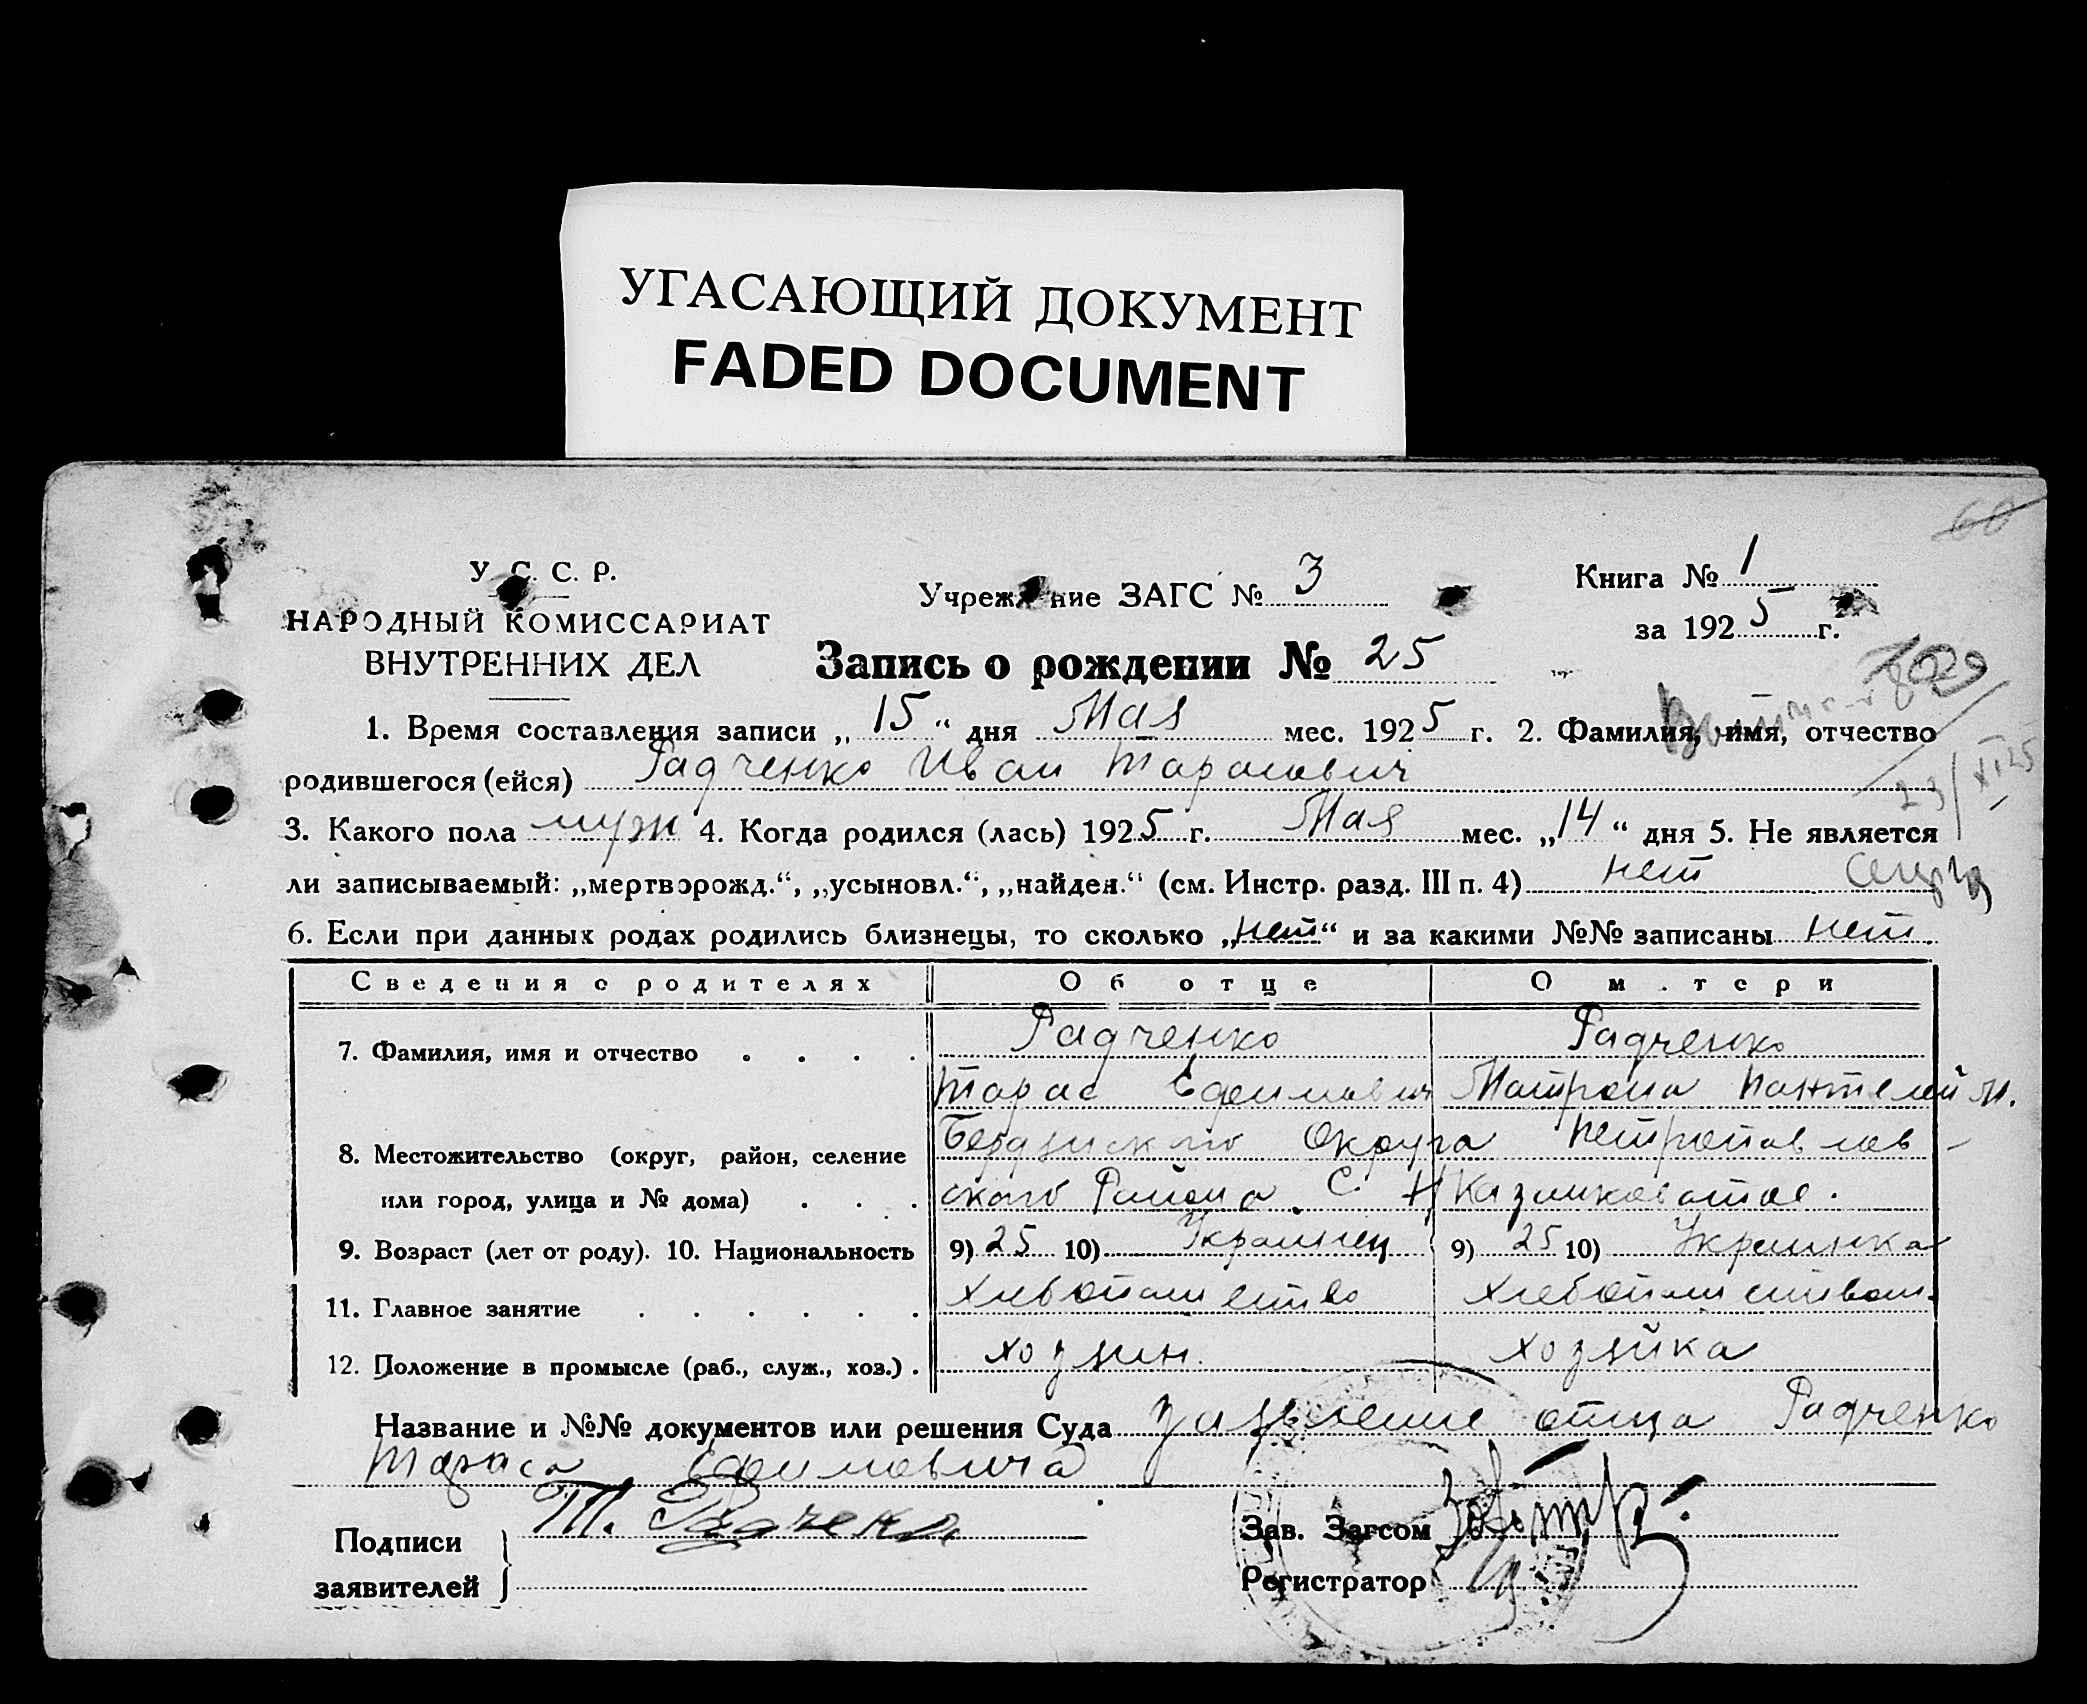 УГАСАЮЩИЙ ДОКУМЕНТ
FADED DOCUMENT
60
У. С. С. Р.
НАРОДНЫЙ КОМИССАРИАТ
ВНУТРЕННИХ ДЕЛ
Учреждение ЗАГС № 3
Книга № 1
за 1925 г.
Запись о рождении № 25
1029
1. Время составления записи „15“ дня Мая мес. 1925 г. 2. Фамилия, имя, отчество
родившегося (ейся) Радченко Иван Тарасович
23/XI 25
3. Какого пола муж 4. Когда родился (лась) 1925 г. Мая мес. „14“ дня 5. Не является
ли записываемый: „мертворожд.“, „усыновл.“, „найден.“ (см. Инстр. разд. III п. 4) нет
6. Если при данных родах родились близнецы, то сколько „нет“ и за какими №№ записаны нет
Сведения о родителях Об отце О м.тери
7. Фамилия, имя и отчество Радченко Радченко
Тарас Ефимович Матрона Пантелейм.
8. Местожительство (округ, район, селение Бердянского Округа Петропавлов-
или город, улица и № дома) ского Района С. Н Казанковатое.
9. Возраст (лет от роду). 10. Национальность 9) 25 10) Украинец 9) 25 10) Украинка
11. Главное занятие Хлебопашество Хлебопашеством.
12. Положение в промысле (раб., служ., хоз.) хозяин. хозяйка
Название и №№ документов или решения Суда Заявление отца Радченко
Тараса Ефимовича
Подписи
заявителей
Т. Радченко
Зав. Загсом
Регистратор